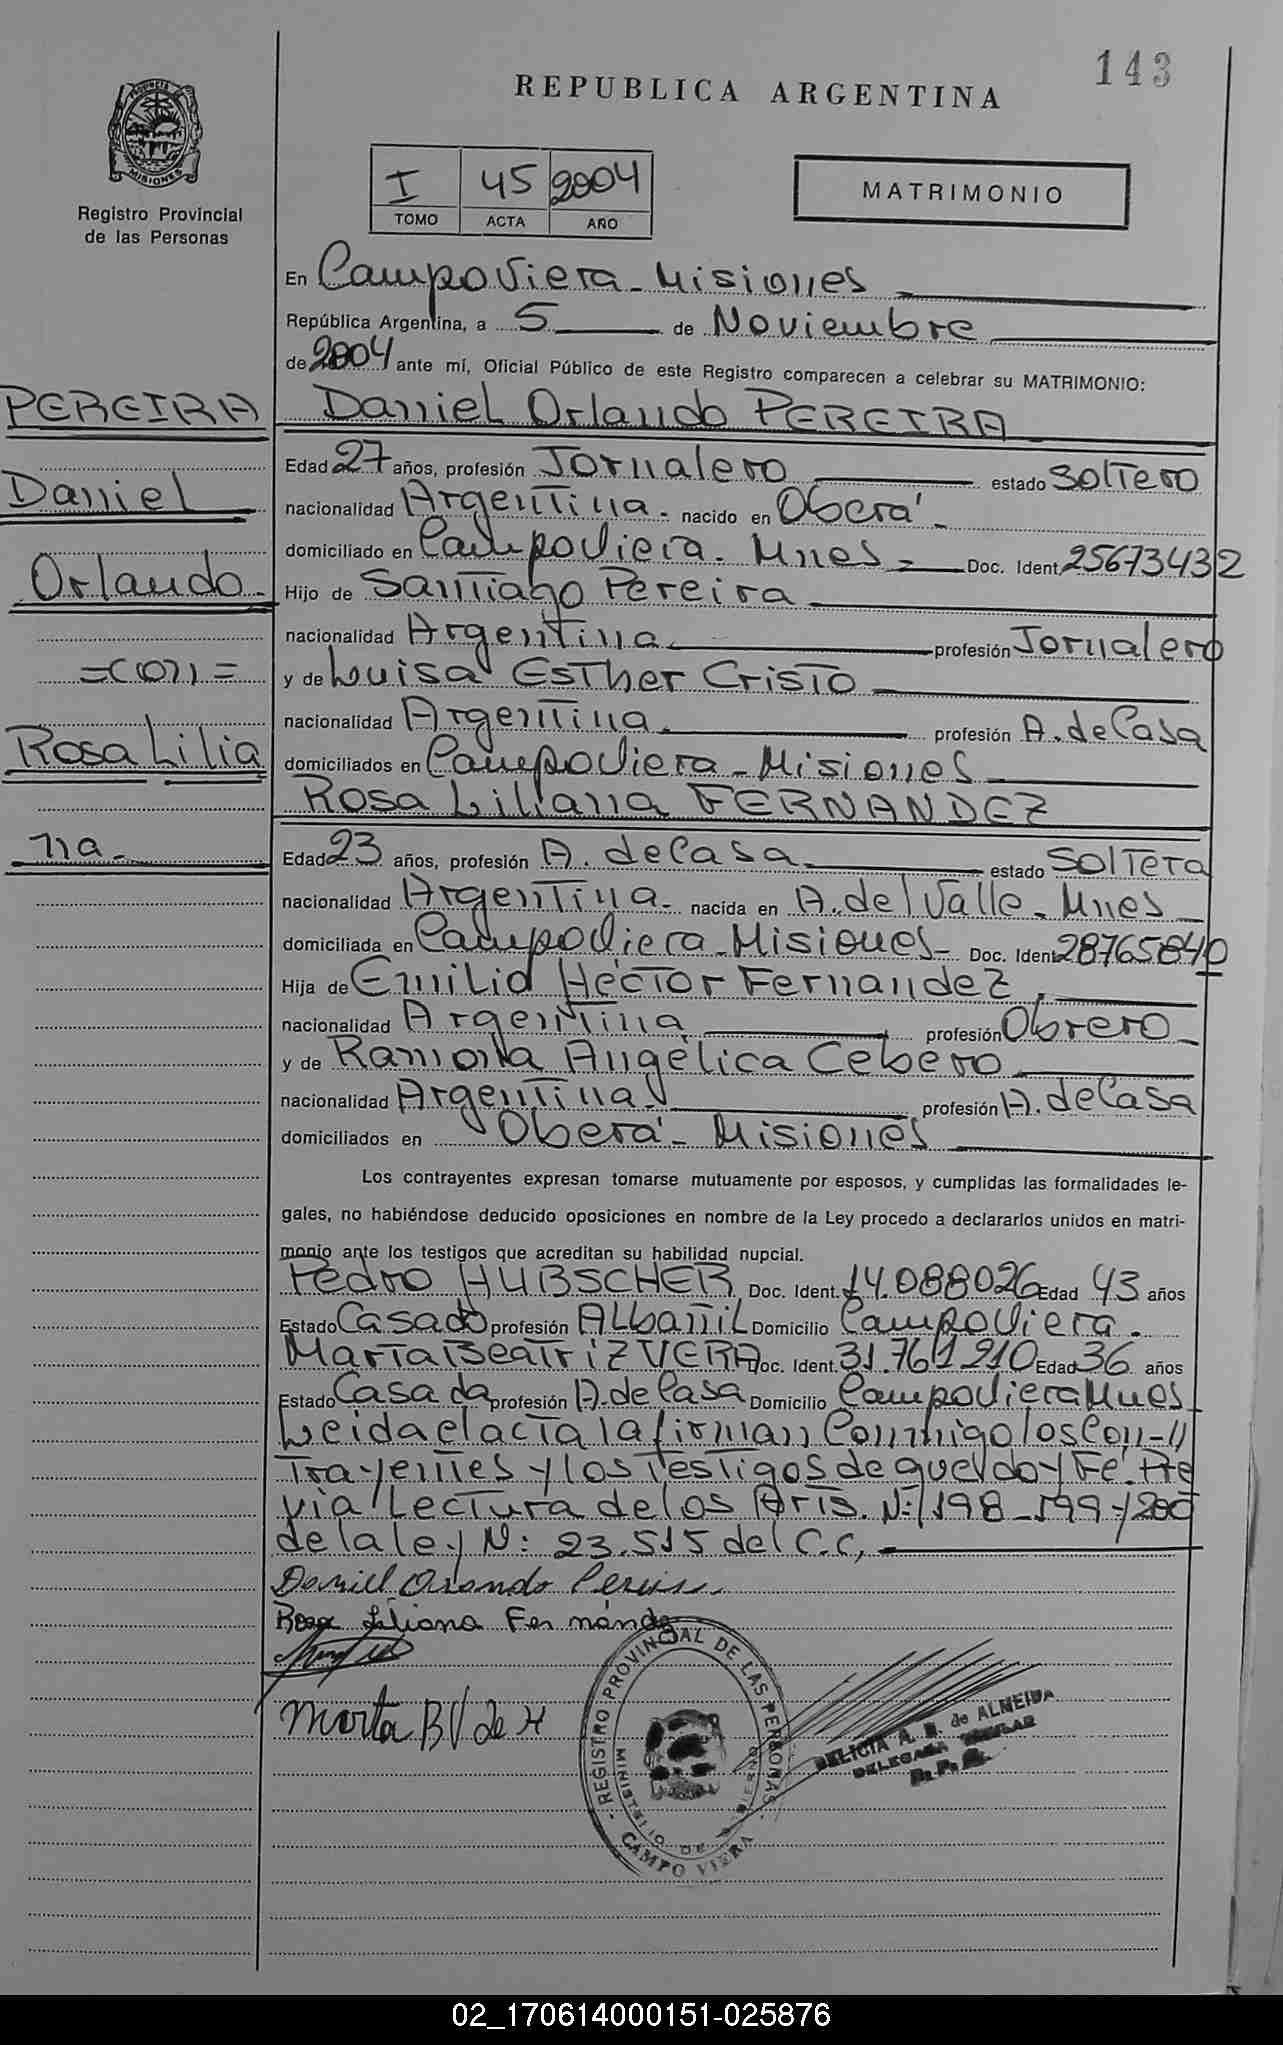 143
REPUBLICA ARGENTINA
PROVINCIA DE
MISIONES
Registro Provincial
de las Personas
I 45 2004
TOMO ACTA AÑO
MATRIMONIO
En Campo Viera - Misiones
República Argentina, a 5 de Noviembre
de 2004 ante mí, Oficial Público de este Registro comparecen a celebrar su MATRIMONIO:
PEREIRA
Daniel
Orlando -
=con=
Rosa Lilia
na.-
Daniel Orlando PEREIRA
Edad 27 años, profesión Jornalero estado Soltero
nacionalidad Argentina.- nacido en Oberá -
domiciliado en Campo Viera. Mnes - Doc. Ident. 25673432
Hijo de Santiago Pereira
nacionalidad Argentina profesión Jornalero
y de Luisa Esther Cristo
nacionalidad Argentina. profesión A. de Casa
domiciliados en Campo Viera - Misiones
Rosa Liliana FERNANDEZ
Edad 23 años, profesión A. de Casa. estado Soltera
nacionalidad Argentina.- nacida en A. del Valle - Mnes
domiciliada en Campo Viera - Misiones - Doc. Ident. 28765840
Hija de Emilio Héctor Fernandez.
nacionalidad Argentina profesión Obrero -
y de Ramona Angélica Cebero
nacionalidad Argentina. profesión A. de Casa
domiciliados en Oberá - Misiones
Los contrayentes expresan tomarse mutuamente por esposos, y cumplidas las formalidades le-
gales, no habiéndose deducido oposiciones en nombre de la Ley procedo a declararlos unidos en matri-
monio ante los testigos que acreditan su habilidad nupcial.
Pedro HUBSCHER Doc. Ident. 14.088026 Edad 43 años
Estado Casado profesión ALbañil Domicilio Campo Viera.
Marta Beatriz VERA Doc. Ident. 31.761210 Edad 36 años
Estado Casada profesión A. de Casa Domicilio Campo Viera Mnes
Leida el acta la firman Conmigo los Con-//
Trayentes y los Testigos de que doy Fé. Pre
via Lectura de los Arts. N:/198-199-/200
de la ley N: 23.515 del C.C,
Daniel Orlando Pereira
Rosa Liliana Fernánde
Marta B V de H
REGISTRO PROVINCIAL DE LAS PERSONAS
MINISTERIO DE GOBIERNO
CAMPO VIERA
DELICIA A. B. de ALMEIDA
DELEGADA TITULAR
R.P.P.
02_170614000151-025876